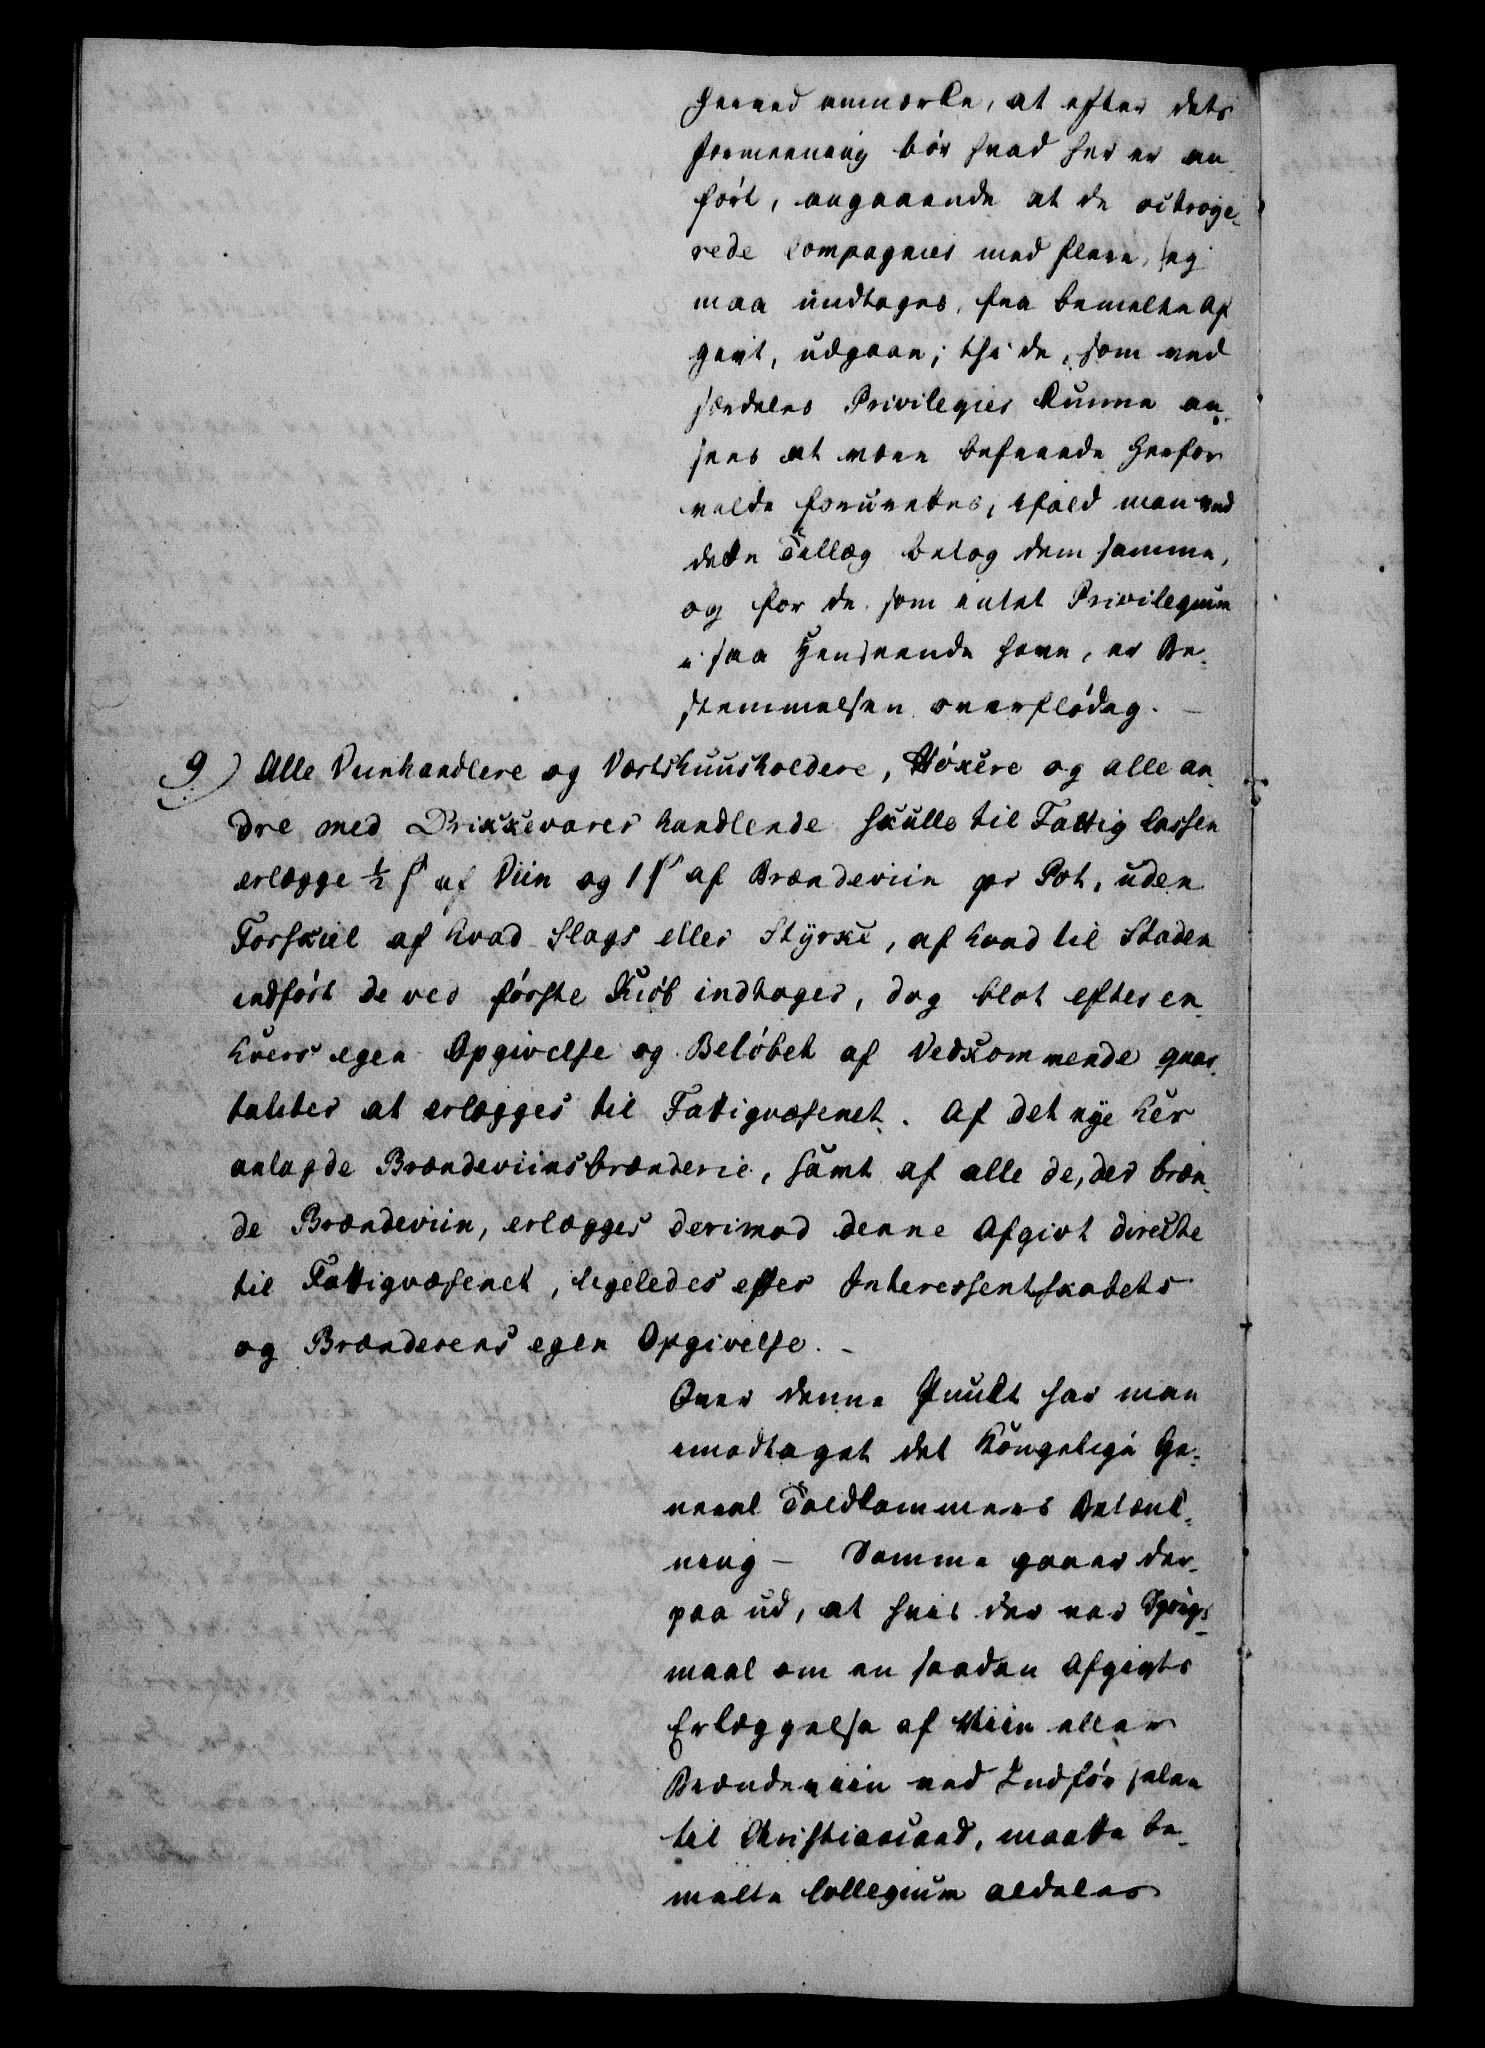 herved anmærke, at efter dets
Formeening bør hvad her er an-
ført, angaaende at de octroye-
rede Compagnier med flere, ej
maa undtages, fra bemelte Af
givt, udgaae; thi de, som ved
særdeles Privilegier kunne an-
sees at være befriede herfor
vilde forurettes, ifald man ved
dette Tillæg betog dem samme,
og for de som intet Privilegium
i saa Henseende have, er Be-
stemmelsen overflødig. —
9) Alle Viinhandlere og Vertshuusholdere, Høkere og alle an-
dre med Drikkevarer handlende skulle til Fattig Cassen
erlægge ½ ß af Viin og 1 ß af Brændeviin pr Pot, uden
Forskiel af hvad Slags eller Styrke, af hvad til Staden
indført de ved første Kiøb indtager, dog blot efter en-
hvers egen Opgivelse og Beløbet af Vedkommende qvar-
taliter at erlægges til Fattigvæsenet. Af det nye her
anlagde Brændeviinsbrænderie, samt af alle de, der bræn-
de Brændeviin, erlægges derimod denne Afgivt directe
til Fattigvæsenet, ligeledes efter Interessentskabets
og Brænderens egen Opgivelse. —
Over denne Punkt har man
imodtaget det Kongelige Ge-
neral Toldkammers Betænk-
ning — Samme gaaer der-
paa ud, at hvis der var Spörgs-
maal om en saadan Afgivts
Erlæggelse af Viin eller
Brændeviin ved Indførselen
til Christiansand, maatte be-
melte Collegium aldeles